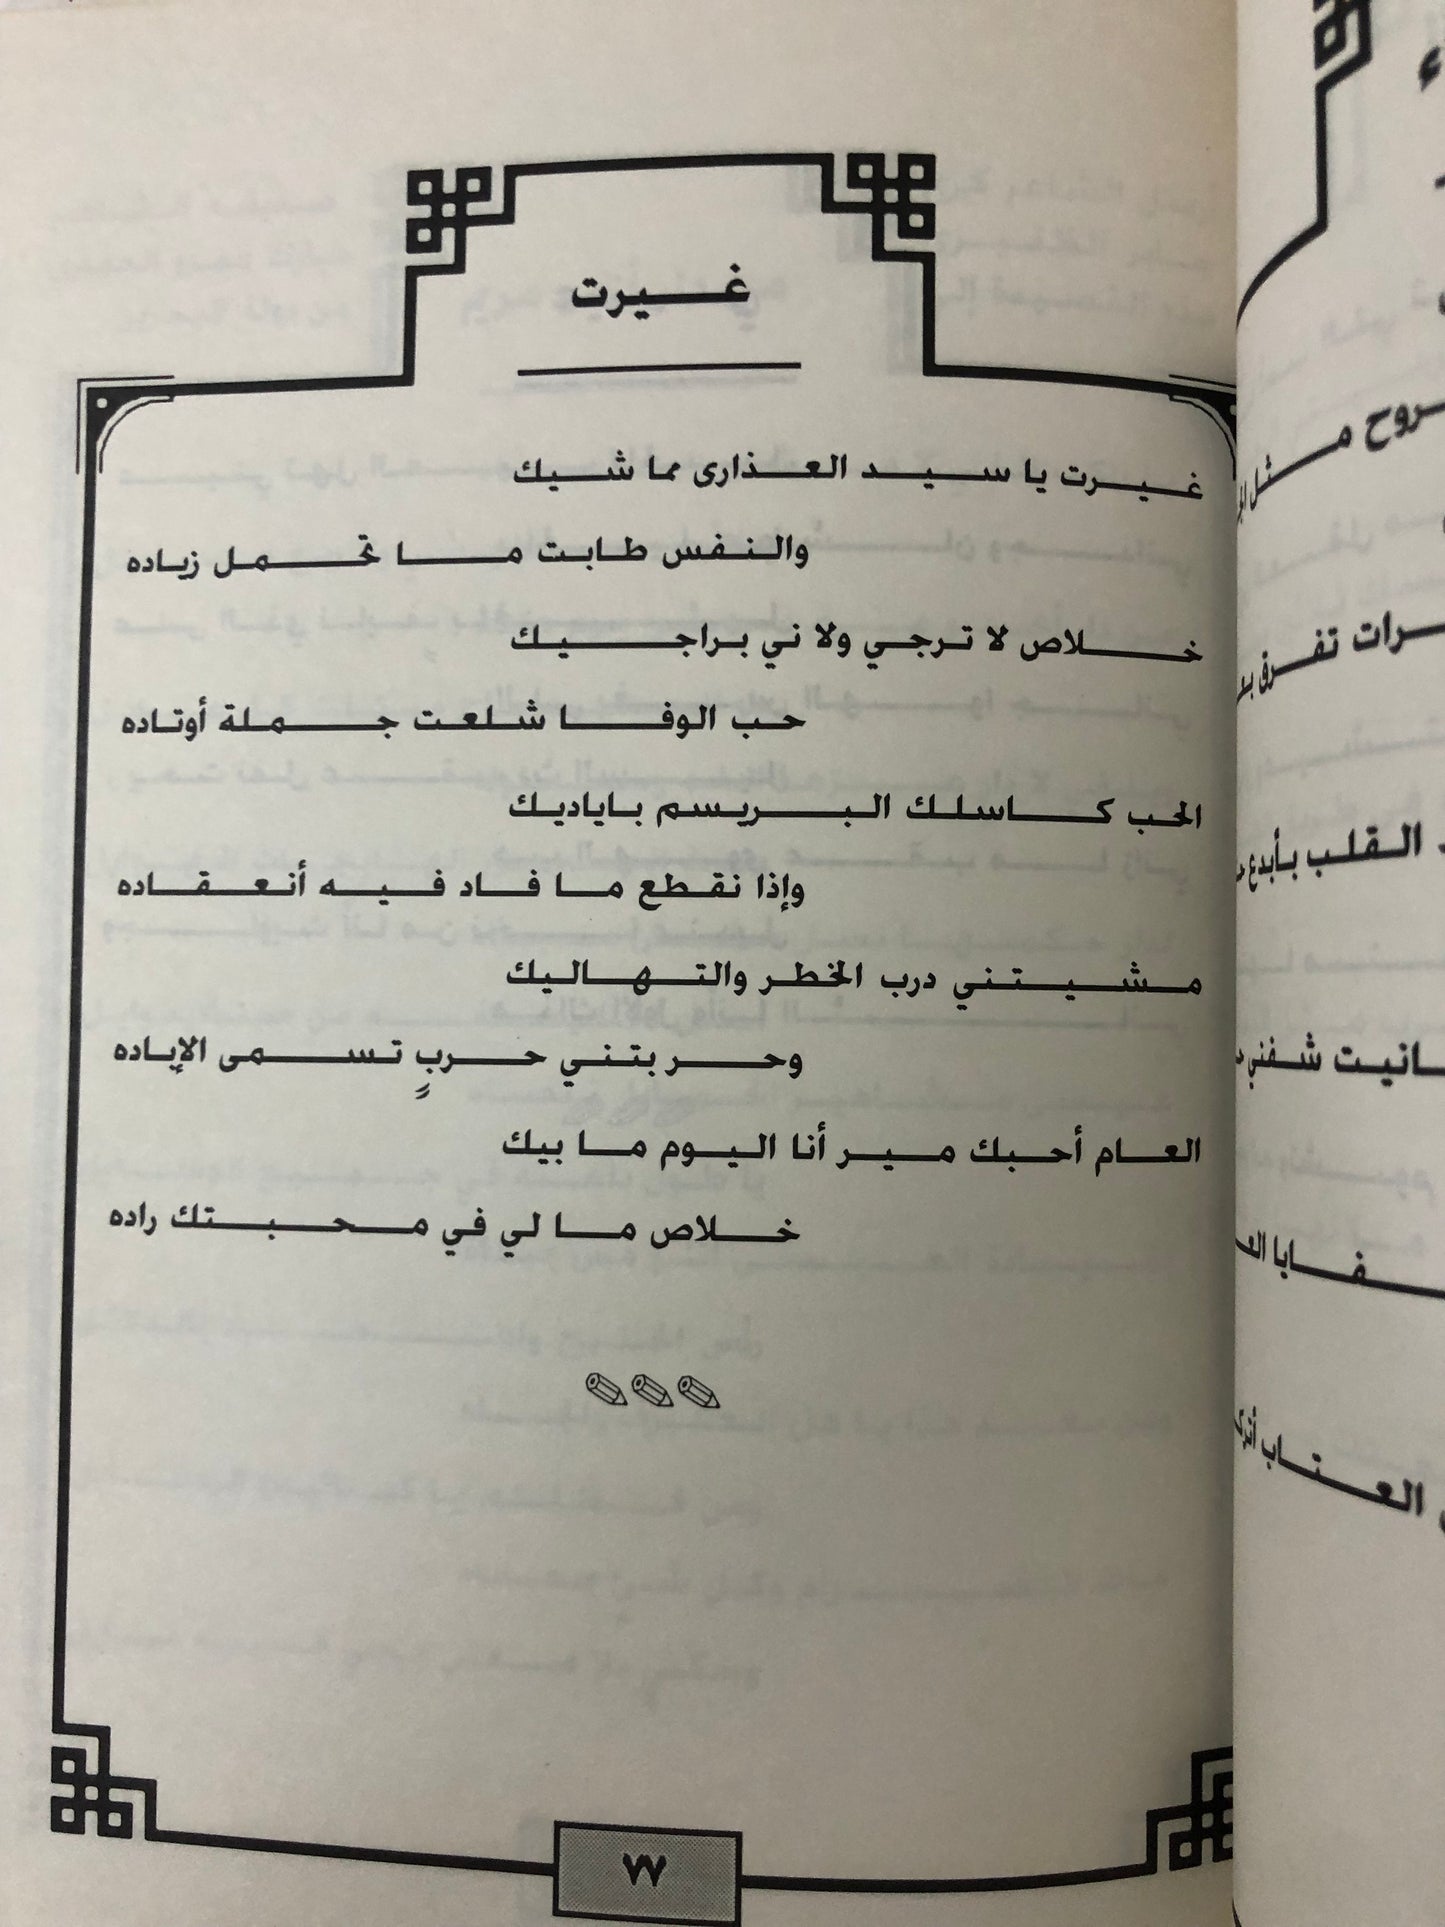 غيرت
غيرت يا سيد العذارى مما شبك
والنفس طابت ما تحمل زياده
خلاص لا ترجي ولا ني براجيك
حب الوفا شلعت جملة أوتاده
الحب كاسلك البريسم باياديك
وإذا نقطع ما فاد فيه أنعقاده
مشيتني درب الخطر والتهاليك
وحر بتني حربٍ تسمى الإباده
العام أحبك مير أنا اليوم ما بيك
خلاص ما لي في محبتك راده
٧٧
روح مثل
رات تفرق
القلب بأبدع
انيت شفني
فايا
العتاب أترك